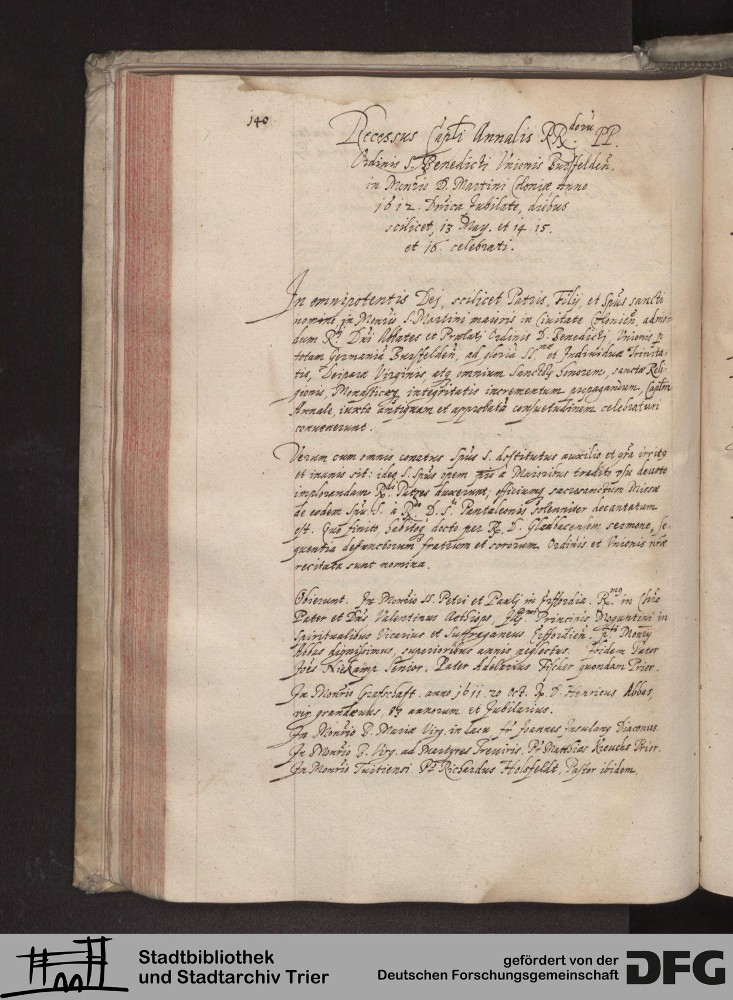 140
Recessus Capli Annalis RR.dorū PP.
Ordinis S. Benedicti Vnionis Bursfelden̄.
in Monrio D. Martini Coloniæ Anno
1612. Dnica Jubilate, diebus
scilicet, 13 May. et 14. 15.
et 16. celebrati.
In omnipotentis Dej, scilicet Patris, Filij, et Spūs sancti
nomine in Monrio S. Martini maioris in Ciuitate Colonien̄, admo-
dum R.di Dni Abbates et Prælatj Ordinis D. Benedictj Vnionis p
totam Germaniā Bursfelden̄, ad gloriā SS.mæ et Indiuiduæ Trinita-
tis, Deiparæ Virginis atq omnium Sanctorū honorem, sanctæ Reli-
gionis, Monasticæq integritatis incrementum propagandum, Caplm
Annale, iuxta antiquam et approbatā consuetudinem celebraturi
conuenerunt.
Verum cum omnis conatus Spūs S. destitutus auxilio et grā irritus
et inanis sit: ideo S. Spūs opem pio a Maioribus tradito vsu deuote
implorandam R.di Patres duxerunt, officiumq sacrosanctum Missæ
de eodem Spū. S. à R.do D. S.ti Pantaleonis solenniter decantatum
est. Quo finito habitoq docto per R. D. Gladbacensem sermone, se-
quentia defunctorum fratrum et sororum Ordinis et Vnionis nræ
recitata sunt nomina.
Obierunt. In Monrio SS. Petri et Paulj in Erffordia. R.mus in Chro
Pater et Dns Valentinus Aethiops, Ill.mi Principis Moguntini in
Spiritualibus Vicarius et Suffraganeus Erfforden̄. Pfti Monrij
Abbas dignissimus, superioribus annis neglectus. Ibidem Pater
Joēs Niekamp Senior. Pater Adelarius Fischer quondam Prior.
In Monrio Grafschaft. anno 1611. 20 Oct. R. D. Henricus Abbas,
vir grandæuus, 87 annorum et Jubilarius.
In Monrio B. Mariæ Virg. in Lacu fr Joannes Insulanus Diaconus.
In Monrio B. Virg. ad Martyres Treuiris, Pr Matthias Kreuchs Prior.
In Monrio Tuitiensi. Pr Richardus Holsfeldt, Pastor ibidem.
Stadtbibliothek
und Stadtarchiv Trier
gefördert von der
Deutschen Forschungsgemeinschaft
DFG